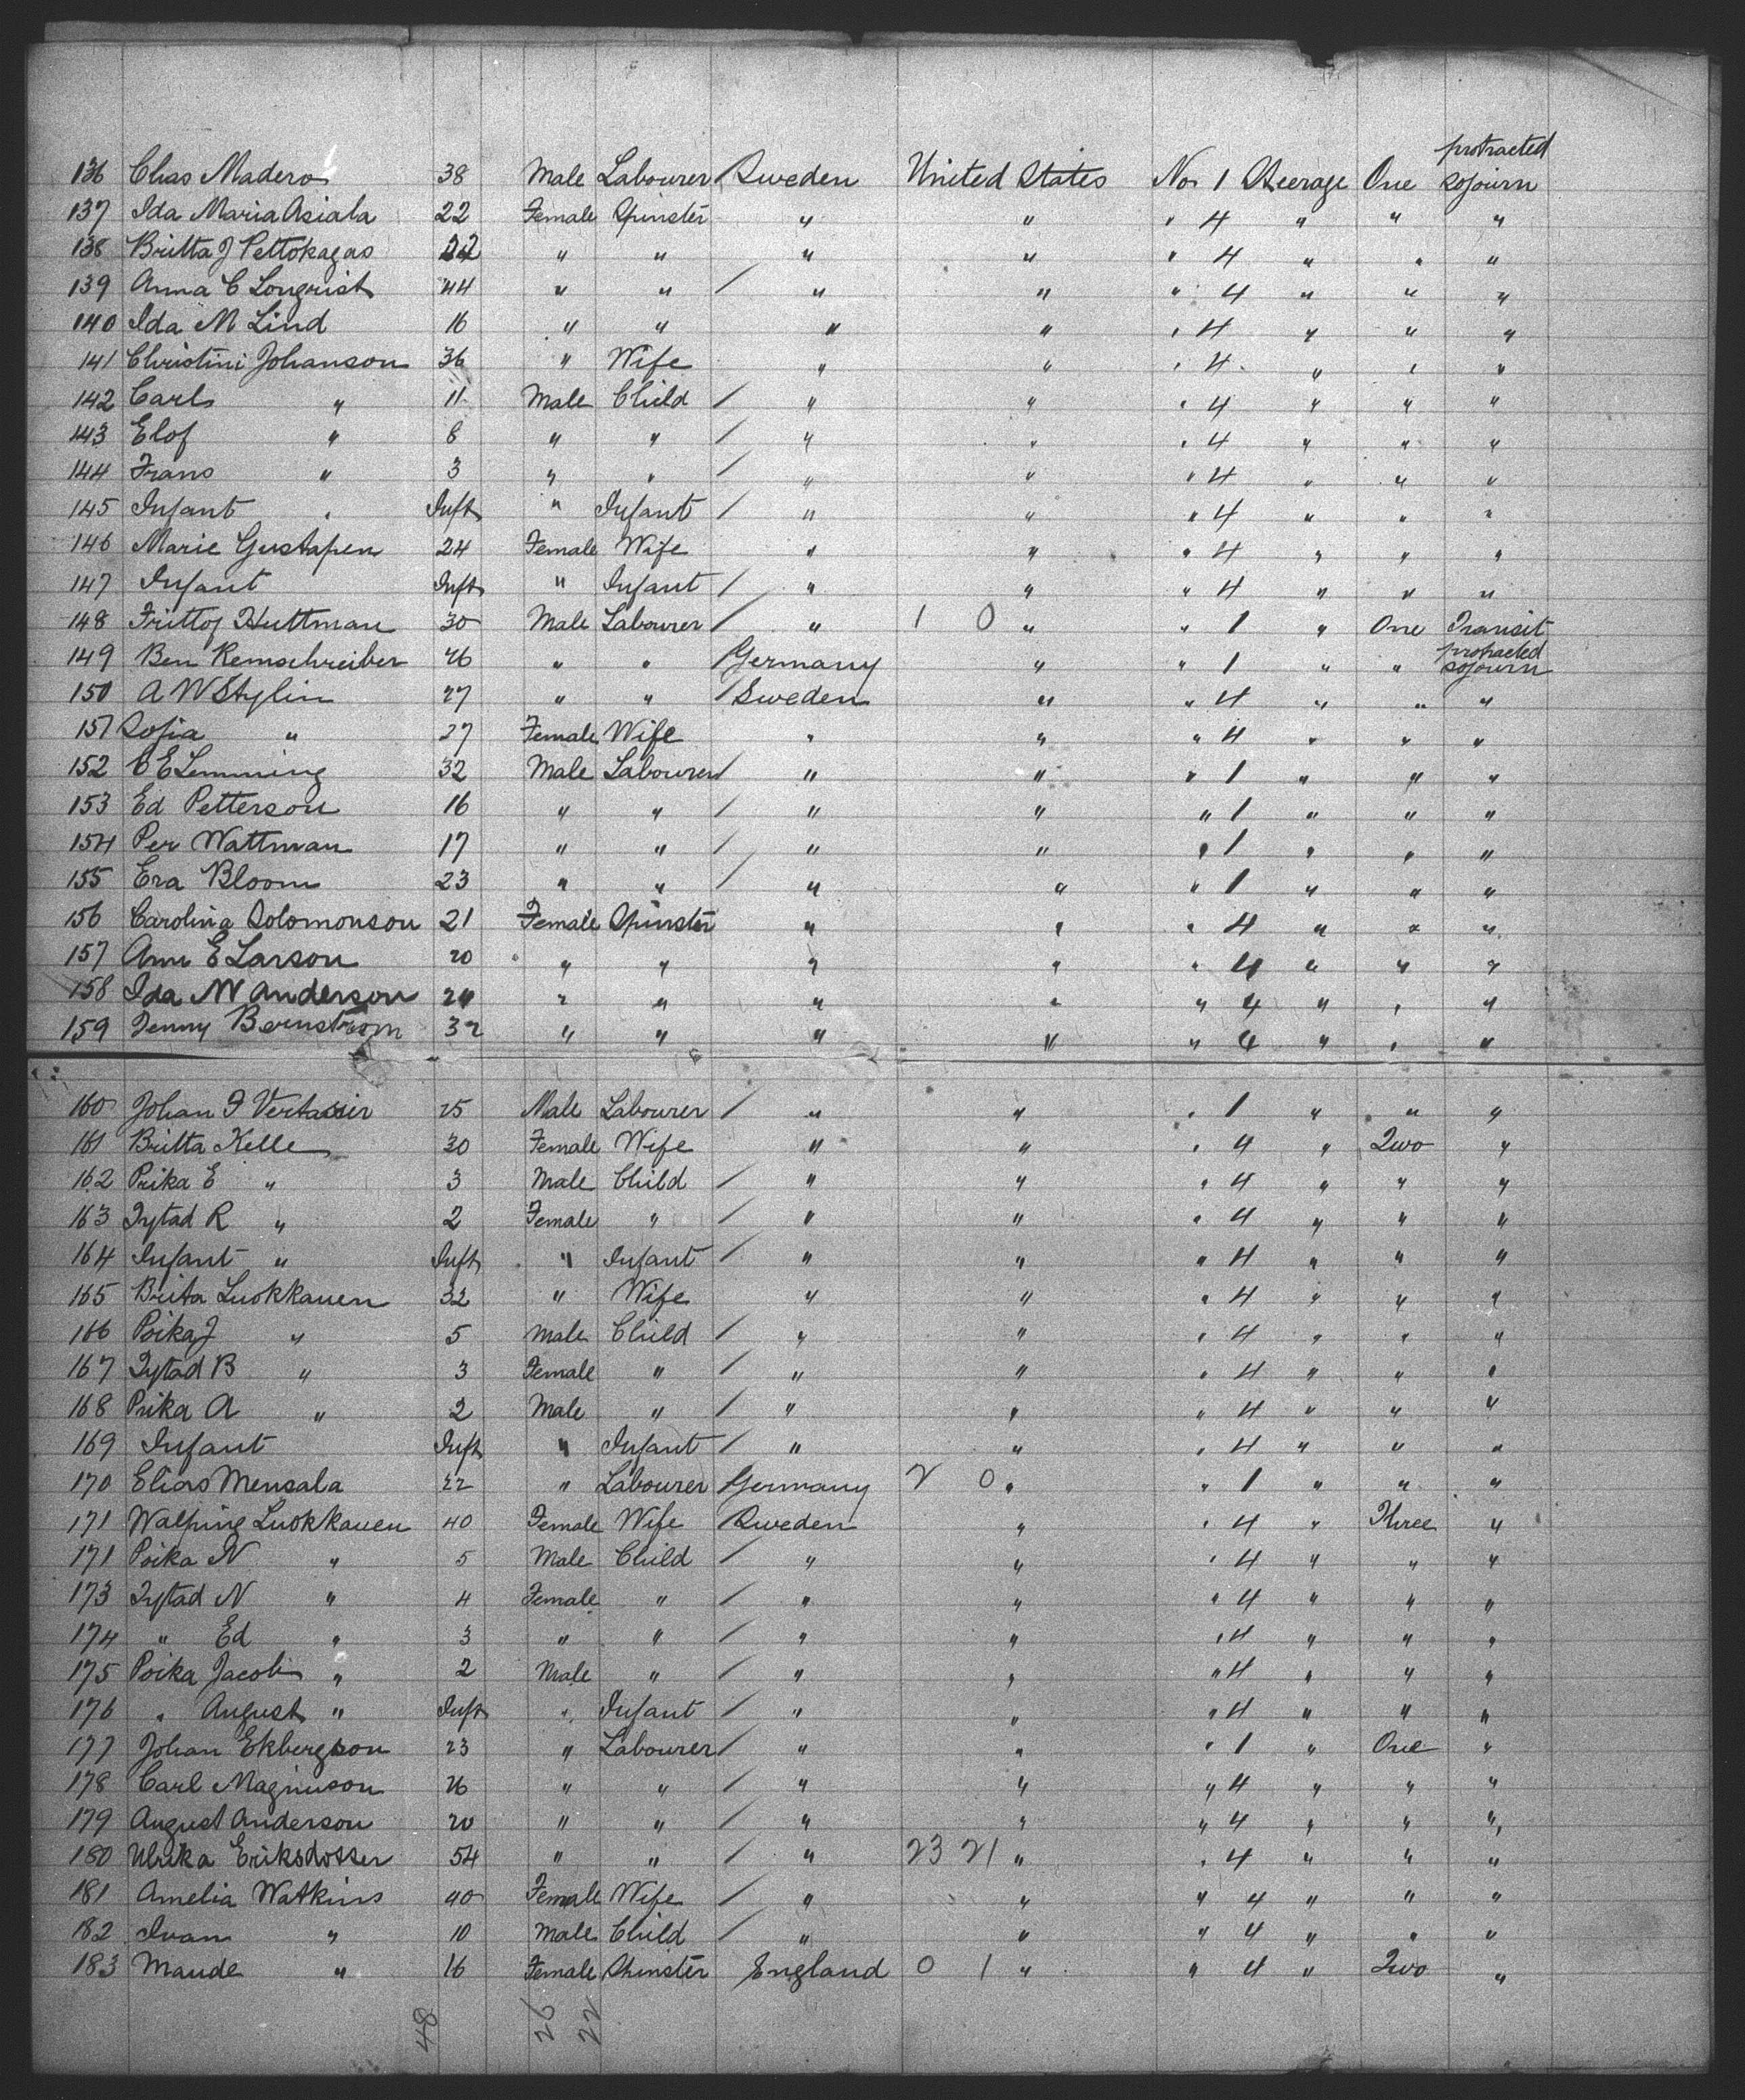 136 Chas Madero 38 Male Labourer Sweden United States No 1 Steerage One protracted sojourn
137 Ida Maria Asiala 22 Female Spinster " " " 4 " " "
138 Britta J Pettokagas 22 " " " " " 4 " " "
139 Anna C Lonqrist 44 " " / " " " 4 " " "
140 Ida M Lind 16 " " " " " 4 " " "
141 Christini Johanson 36 " Wife " " " 4 " " "
142 Carl " 11 Male Child / " " " 4 " " "
143 Elof " 8 " " / " " " 4 " " "
144 Frans " 3 " " / " " " 4 " " "
145 Infant " Inft " Infant / " " " 4 " " "
146 Marie Gustafsen 24 Female Wife " " " 4 " " "
147 Infant Inft " Infant / " " " 4 " " "
148 Frittof Huttman 30 Male Labourer / " 1 0 " " 1 " One Transit
149 Ben Remschreiber 26 " " Germany " " 1 " " protracted sojourn
150 A W Stylin 27 " " / Sweden " " 4 " " "
151 Sofia " 27 Female Wife " " " 4 " " "
152 C E Lemming 32 Male Labourer / " " " 1 " " "
153 Ed Petterson 16 " " / " " " 1 " " "
154 Per Wattman 17 " " / " " " 1 " " "
155 Era Bloom 23 " " / " " " 1 " " "
156 Carolina Solomonson 21 Female Spinster " " " 4 " " "
157 Ann E Larson 20 " " " " " 4 " " "
158 Ida W Anderson 24 " " " " " 4 " " "
159 Jenny Bernstrom 32 " " " " " 4 " " "
160 Johan F 25 Male Labourer / " " " 1 " " "
161 Britta Kelle 30 Female Wife " " " 4 " Two "
162 Prika E " 3 Male Child / " " " 4 " " "
163 Tytad R " 2 Female " / " " " 4 " " "
164 Infant " Inft " Infant / " " " 4 " " "
165 Brita Luokkanen 32 " Wife " " " 4 " " "
166 Poika J " 5 Male Child / " " " 4 " " "
167 Tytad B " 3 Female " / " " " 4 " " "
168 Prika A " 2 Male " / " " " 4 " " "
169 Infant Inft " Infant / " " " 4 " " "
170 Elias Mensala 22 " Labourer Germany 2 0 " " 1 " " "
171 Walpine Luokkanen 40 Female Wife Sweden " " 4 " Three "
171 Poika N " 5 Male Child / " " " 4 " " "
173 Tytad N " 4 Female " / " " " 4 " " "
174 " Ed " 3 " " / " " " 4 " " "
175 Poika Jacob " 2 Male " / " " " 4 " " "
176 " August " Inft " Infant / " " " 4 " " "
177 Johan Ekbergson 23 " Labourer / " " " 1 " One "
178 Carl Magnuson 26 " " / " " " 4 " " "
179 August Anderson 20 " " / " " " 4 " " "
180 Ulrika Eriksdotter 54 " " / " 23 21 " " 4 " " "
181 Amelia Watkins 40 Female Wife / " " " 4 " " "
182 Ivan " 10 Male Child / " " " 4 " " "
183 Maude " 16 Female Spinster England 0 1 " " 4 " Two "
48 26 22